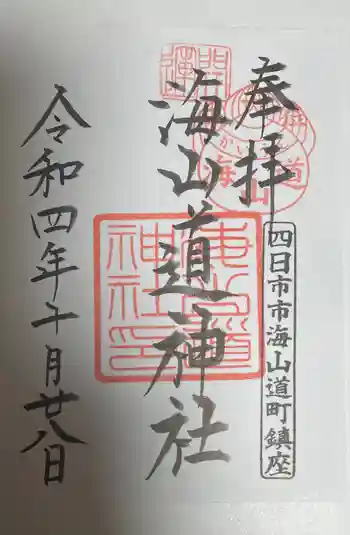 奉拝
四日市市海山道町鎮座
海山道神社
海山道神社印
開運
海山道
令和四年十月廿八日